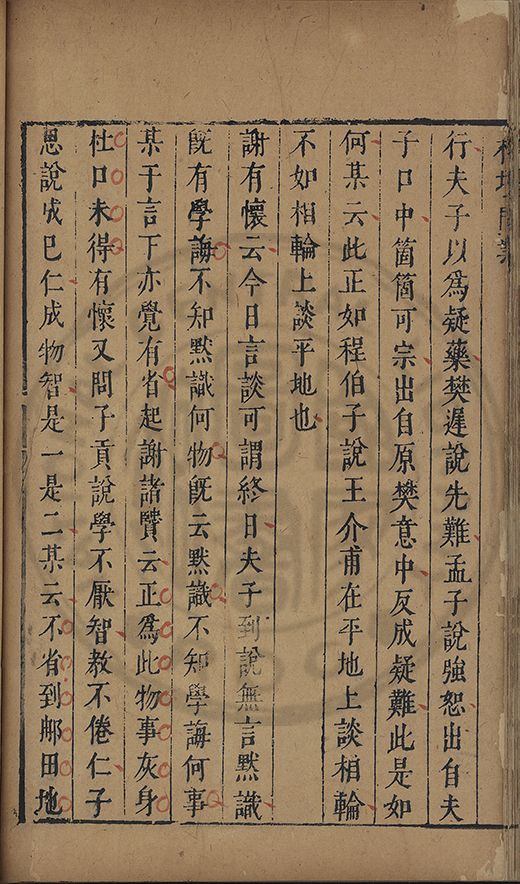 行夫子以爲疑藥樊遲說先難孟子說強恕出自夫
子口中箇箇可宗出自原樊意中反成疑難此是如
何某云此正如程伯子說王介甫在平地上談相輪
不如相輪上談平地也
謝有懷云今日言談可謂終日夫子到說無言默識
旣有學誨不知默識何物旣云默識不知學誨何事
某于言下亦覺有省起謝諸賢云正爲此物事灰身
杜口未得有懷又問子貢說學不厭智教不倦仁子
思說成巳仁成物智是一是二某云不省到鄉田地